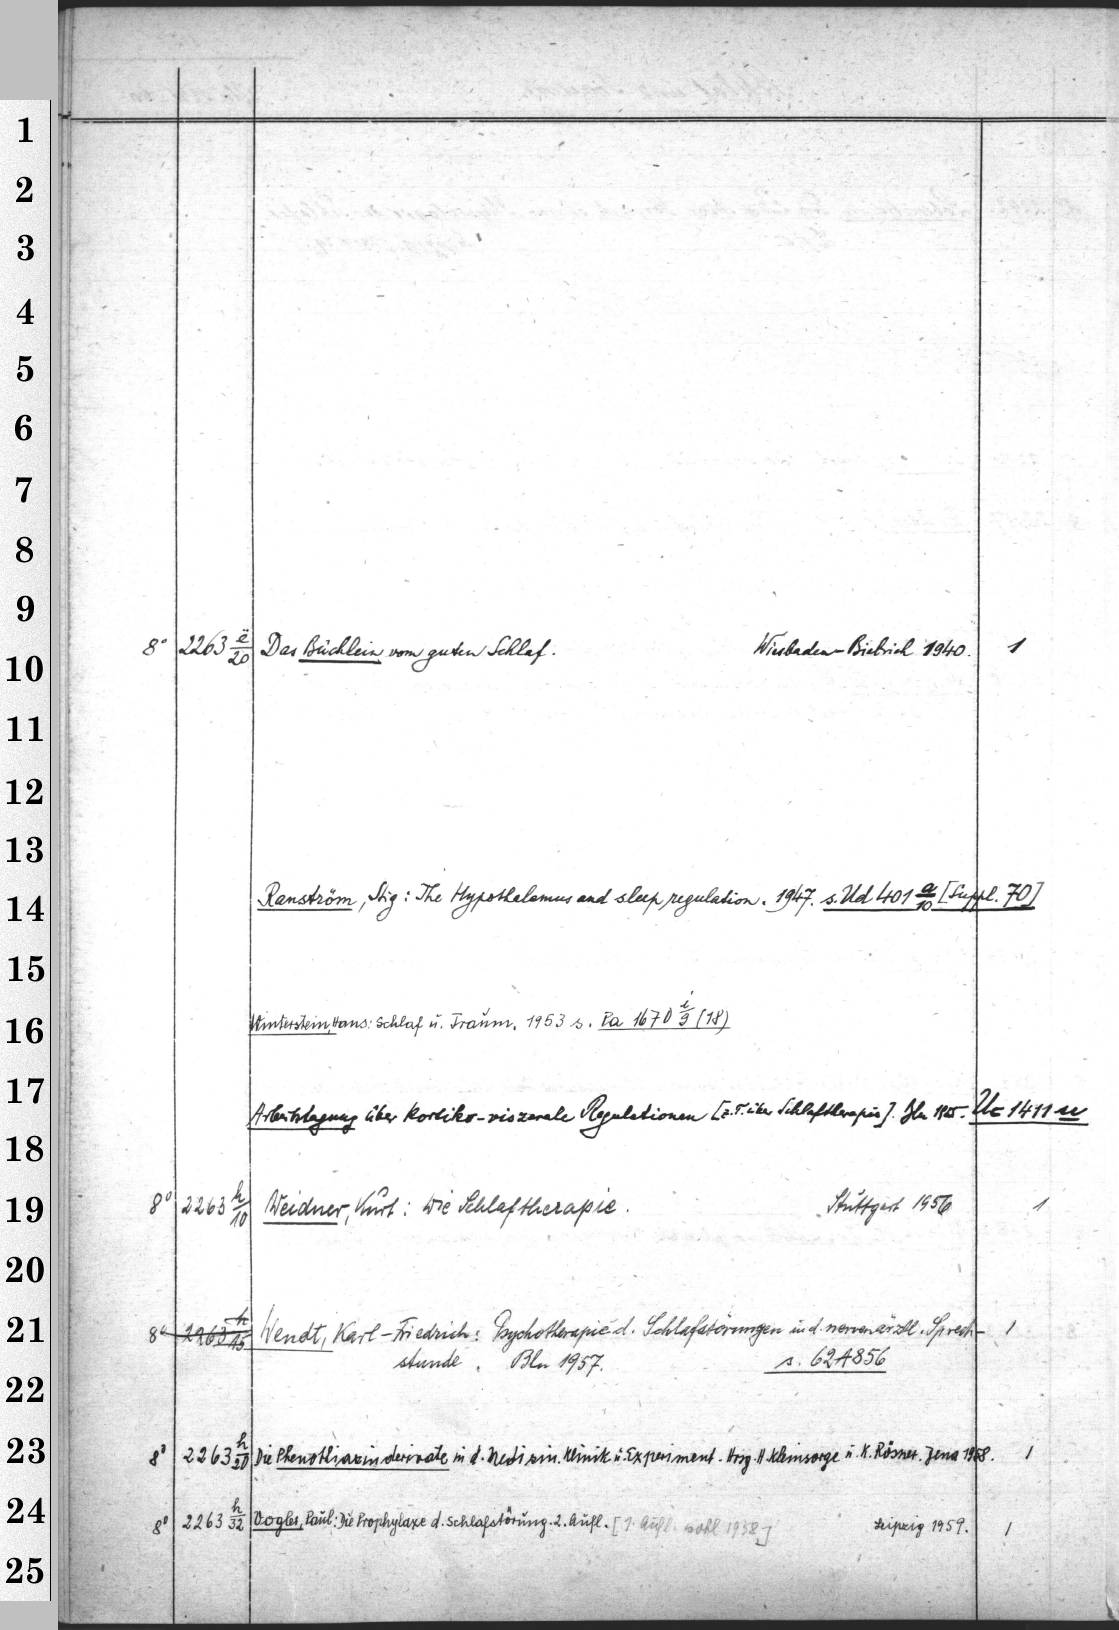 1
2
3
4
5
6
7
8
9
8° 2263 ë/20 Das Büchlein vom guten Schlaf. Wiesbaden-Biebrich 1940. 1
10
11
12
13
14 Ranström, Stig: The Hypothalamus and sleep regulation. 1947. s. Ud 401 a/10 [Suppl. 70]
15
16 Winterstein, Hans: Schlaf u. Traum. 1953 s. Pa 1670 i/9 (18)
17
Arbeitstagung über kortiko-viszerale Regulationen [z.T. über Schlaftherapie]. Bln 1955. Uc 1411 u
18
19 8° 2263 h/10 Weidner, Kurt: Die Schlaftherapie. Stuttgart 1956 1
20
21 8° 2263 h/15 Wendt, Karl-Friedrich: Psychotherapie d. Schlafstörungen in d. nervenärztl. Sprech- 1
stunde. Bln 1957. s. 62 A 856
22
23 8° 2263 h/20 Die Phenothiazinderivate in d. Medizin. Klinik u. Experiment. Hrsg. H. Kleinsorge u. K. Rösner. Jena 1958. 1
24 8° 2263 h/32 Vogler, Paul: Die Prophylaxe d. Schlafstörung. 2. Aufl. [1. Aufl. wohl 1938] Leipzig 1959. 1
25